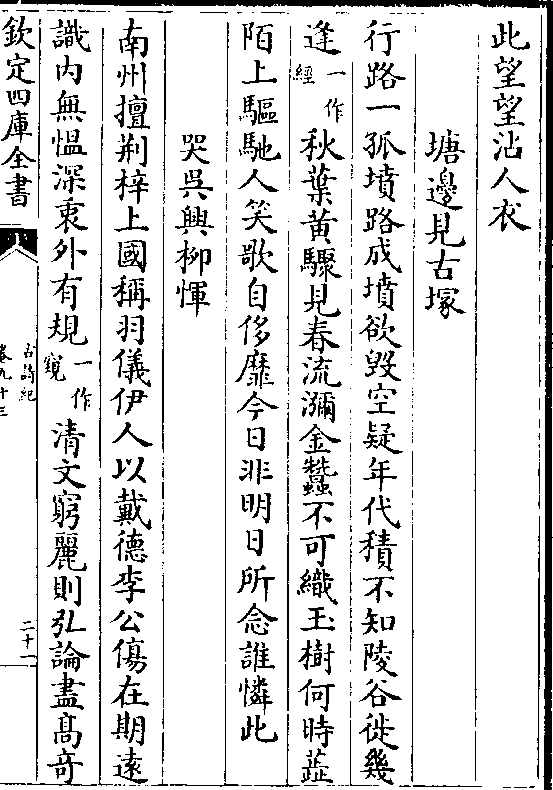 此望望沾人衣
塘邊見古塜
行路一孤墳路成墳欲毀空疑年代積不知陵谷徙幾
逢一作經秋葉黄驟見春流瀰金蠶不可織玉樹何時蘂
陌上驅馳人笑歌自侈靡今日非明日所念誰憐此
哭吳興柳惲
南州擅荆梓上國稱羽儀伊人以戴德李公傷在期遠
識内無愠深衷外有規一作窺清文窮麗則弘論盡髙奇
欽定四庫全書
古詩紀
卷九十三
二十一